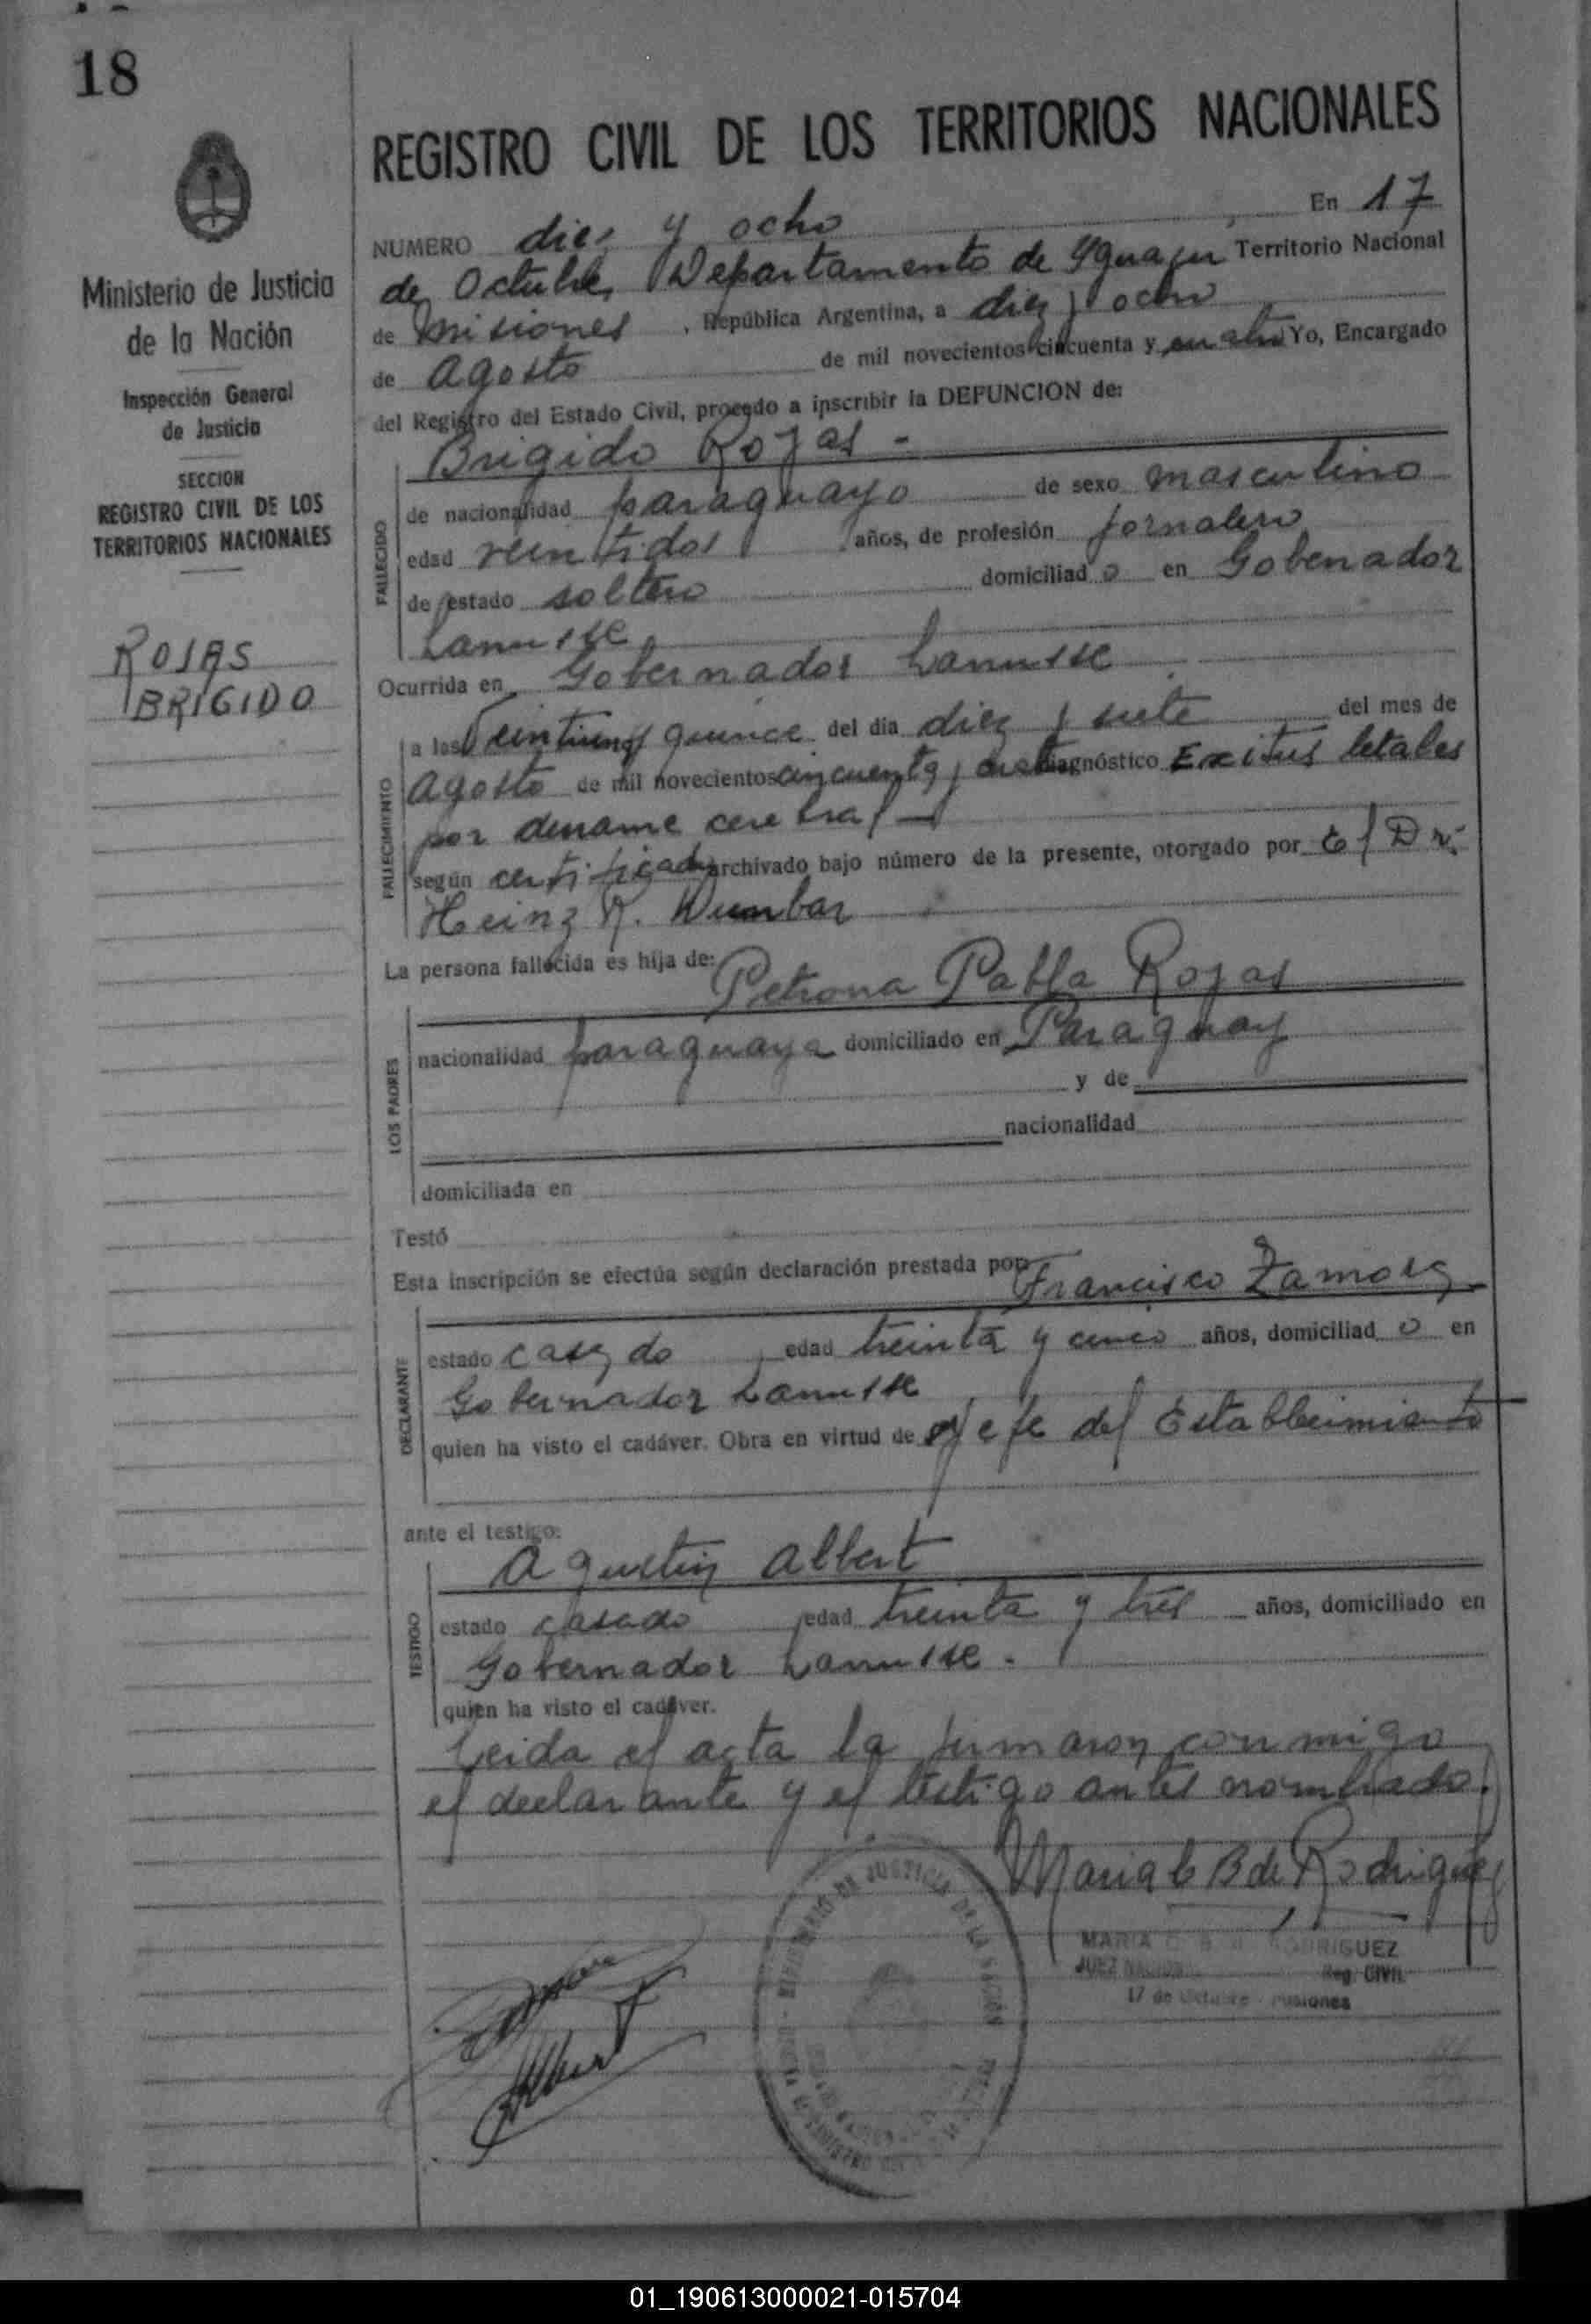 18
REGISTRO CIVIL DE LOS TERRITORIOS NACIONALES
NUMERO diez y ocho En 17
de Octubre, Departamento de Yguazu Territorio Nacional
de Misiones, República Argentina, a diez y ocho
de Agosto de mil novecientos cincuenta y cuatro Yo, Encargado
del Registro del Estado Civil, procedo a inscribir la DEFUNCION de:
Brigido Rojas -
Ministerio de Justicia
de la Nación
Inspección General
de Justicia
SECCION
REGISTRO CIVIL DE LOS
TERRITORIOS NACIONALES
ROJAS
BRIGIDO
FALLECIDO
de nacionalidad paraguayo de sexo masculino
edad veintidos años, de profesión jornalero
de estado soltero domiciliad o en Gobenador
Lanusse
Ocurrida en Gobernador Lanusse
FALLECIMIENTO
a las Veintiuna y quince del día diez y siete del mes de
Agosto de mil novecientos cincuenta y cuatro diagnóstico Exitus letales
por derrame cerebral
según certificado archivado bajo número de la presente, otorgado por el Dr.
Heinz R. Dunbar
La persona fallecida es hija de:
Petrona Pabla Rojas
LOS PADRES
nacionalidad paraguaya domiciliado en Paraguay
y de
nacionalidad
domiciliada en
Testó
Esta inscripción se efectúa según declaración prestada por
Francisco Zamora
DECLARANTE
estado casado edad treinta y cinco años, domiciliad o en
Gobernador Lanusse
quien ha visto el cadáver. Obra en virtud de Jefe del Establecimiento
ante el testigo:
Agustin Albert
TESTIGO
estado casado edad treinta y tres años, domiciliado en
Gobernador Lanusse.
quien ha visto el cadáver.
Leida el acta la firmaron conmigo
el declarante y el testigo antes nombrado.
Maria C B de Rodriguez
MARIA C. B. DE RODRIGUEZ
JUEZ Reg. CIVIL
17 de Octubre - Misiones
MINISTERIO DE JUSTICIA DE LA NACION
01_190613000021-015704